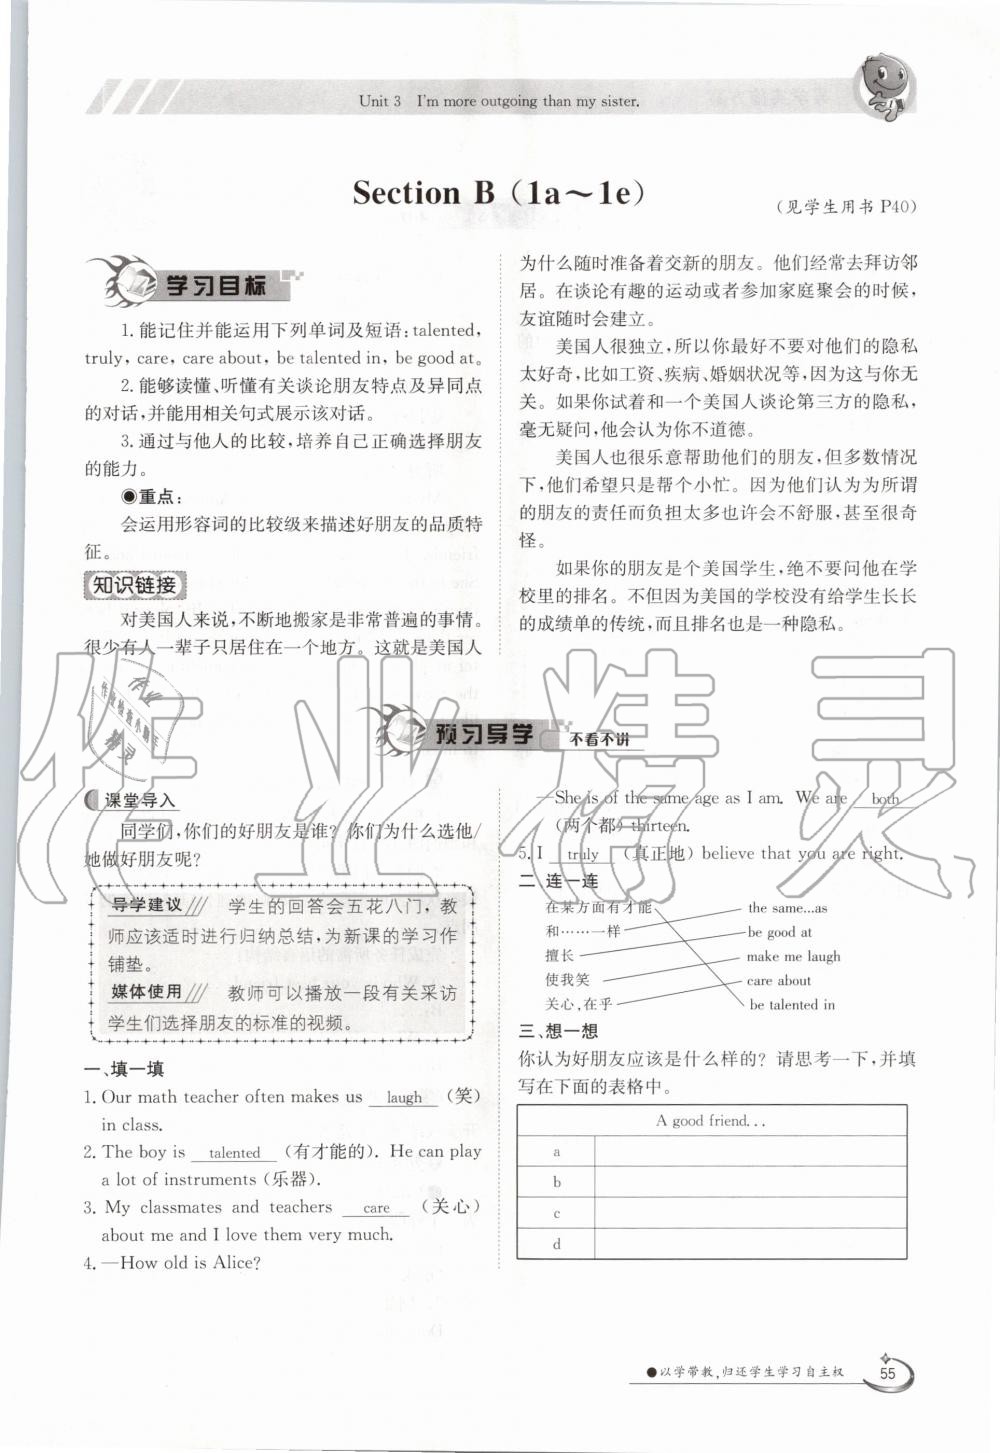 Unit 3 I'm more outgoing than my sister.
Section B（1a～1e）
（见学生用书 P40）
学习目标
1. 能记住并能运用下列单词及短语:talented,
truly, care, care about, be talented in, be good at。
2. 能够读懂、听懂有关谈论朋友特点及异同点
的对话,并能用相关句式展示该对话。
3. 通过与他人的比较,培养自己正确选择朋友
的能力。
◉重点:
会运用形容词的比较级来描述好朋友的品质特
征。
知识链接
对美国人来说,不断地搬家是非常普遍的事情。
很少有人一辈子只居住在一个地方。这就是美国人
为什么随时准备着交新的朋友。他们经常去拜访邻
居。在谈论有趣的运动或者参加家庭聚会的时候,
友谊随时会建立。
美国人很独立,所以你最好不要对他们的隐私
太好奇,比如工资、疾病、婚姻状况等,因为这与你无
关。如果你试着和一个美国人谈论第三方的隐私,
毫无疑问,他会认为你不道德。
美国人也很乐意帮助他们的朋友,但多数情况
下,他们希望只是帮个小忙。因为他们认为为所谓
的朋友的责任而负担太多也许会不舒服,甚至很奇
怪。
如果你的朋友是个美国学生,绝不要问他在学
校里的排名。不但因为美国的学校没有给学生长长
的成绩单的传统,而且排名也是一种隐私。
预习导学 不看不讲
课堂导入
同学们,你们的好朋友是谁? 你们为什么选他/
她做好朋友呢?
导学建议 学生的回答会五花八门,教
师应该适时进行归纳总结,为新课的学习作
铺垫。
媒体使用 教师可以播放一段有关采访
学生们选择朋友的标准的视频。
一、填一填
1. Our math teacher often makes us laugh （笑）
in class.
2. The boy is talented （有才能的）. He can play
a lot of instruments（乐器）.
3. My classmates and teachers care （关心）
about me and I love them very much.
4. —How old is Alice?
—She is of the same age as I am. We are both
（两个都）thirteen.
5. I truly （真正地）believe that you are right.
二、连一连
在某方面有才能 the same...as
和……一样 be good at
擅长 make me laugh
使我笑 care about
关心,在乎 be talented in
三、想一想
你认为好朋友应该是什么样的? 请思考一下,并填
写在下面的表格中。
A good friend...
a
b
c
d
●以学带教,归还学生学习自主权 55
作业精灵
作业
作业检查小助手
精灵